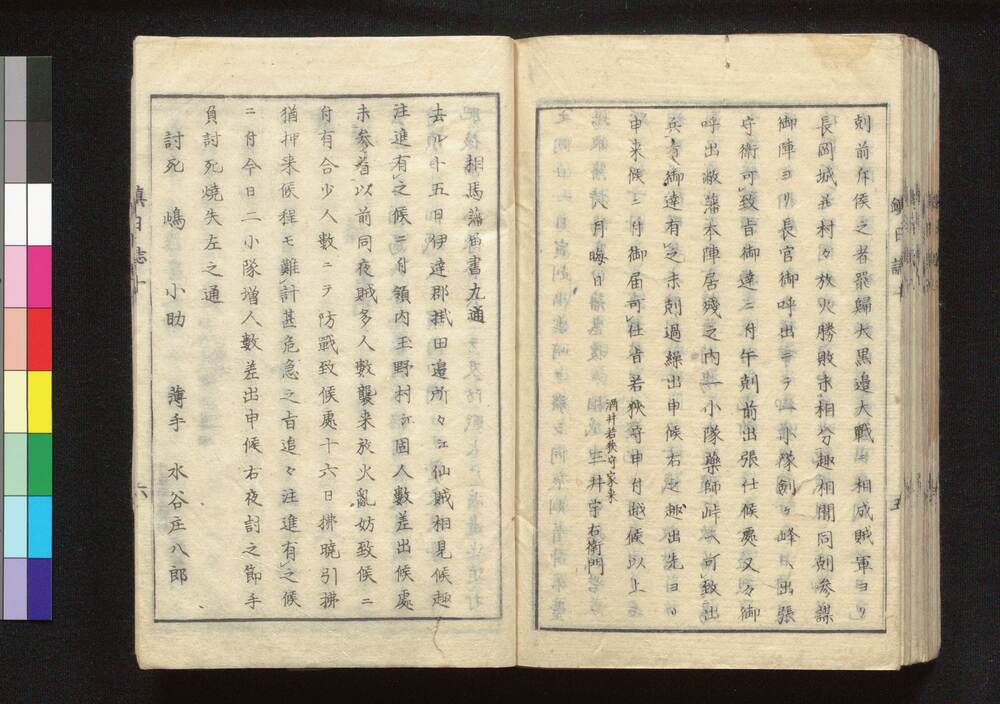 剋前斥侯之者罷歸大黒邉大戰ニ相成賊軍ヨリ
長岡城并村々放火勝敗未相分趣相聞同剋參謀
御陣ヨリ長官御呼出ニテ一小隊劍ヶ峰へ出張
守衛可致旨御達ニ付午剋前出張仕候處又々御
呼出敝藩本陣居殘之内一小隊藥師峠へ可致出
兵旨御達有之未剋過繰出申候右之趣出先ヨリ
申来候ニ付御届可仕旨若狹守申付越候以上
酒井若狹守家来
月晦日 三井宇右衛門
鎮日誌十
五
相馬藩届書九通
去ル十五日伊達郡掛田邉所々江仙賊相見候趣
注進有之候ニ付領内玉野村江固人數差出候處
未參着以前同夜賊多人數襲来放火亂妨致候ニ
付有合少人數ニテ防戰致候處十六日拂曉引拂
猶押来候程モ難計甚危急之旨追々注進有之候
ニ付今日二小隊増人數差出申候右夜討之節手
負討死燒失左之通
討死 嶋小助 薄手 水谷庄八郎
鎮日誌十
六